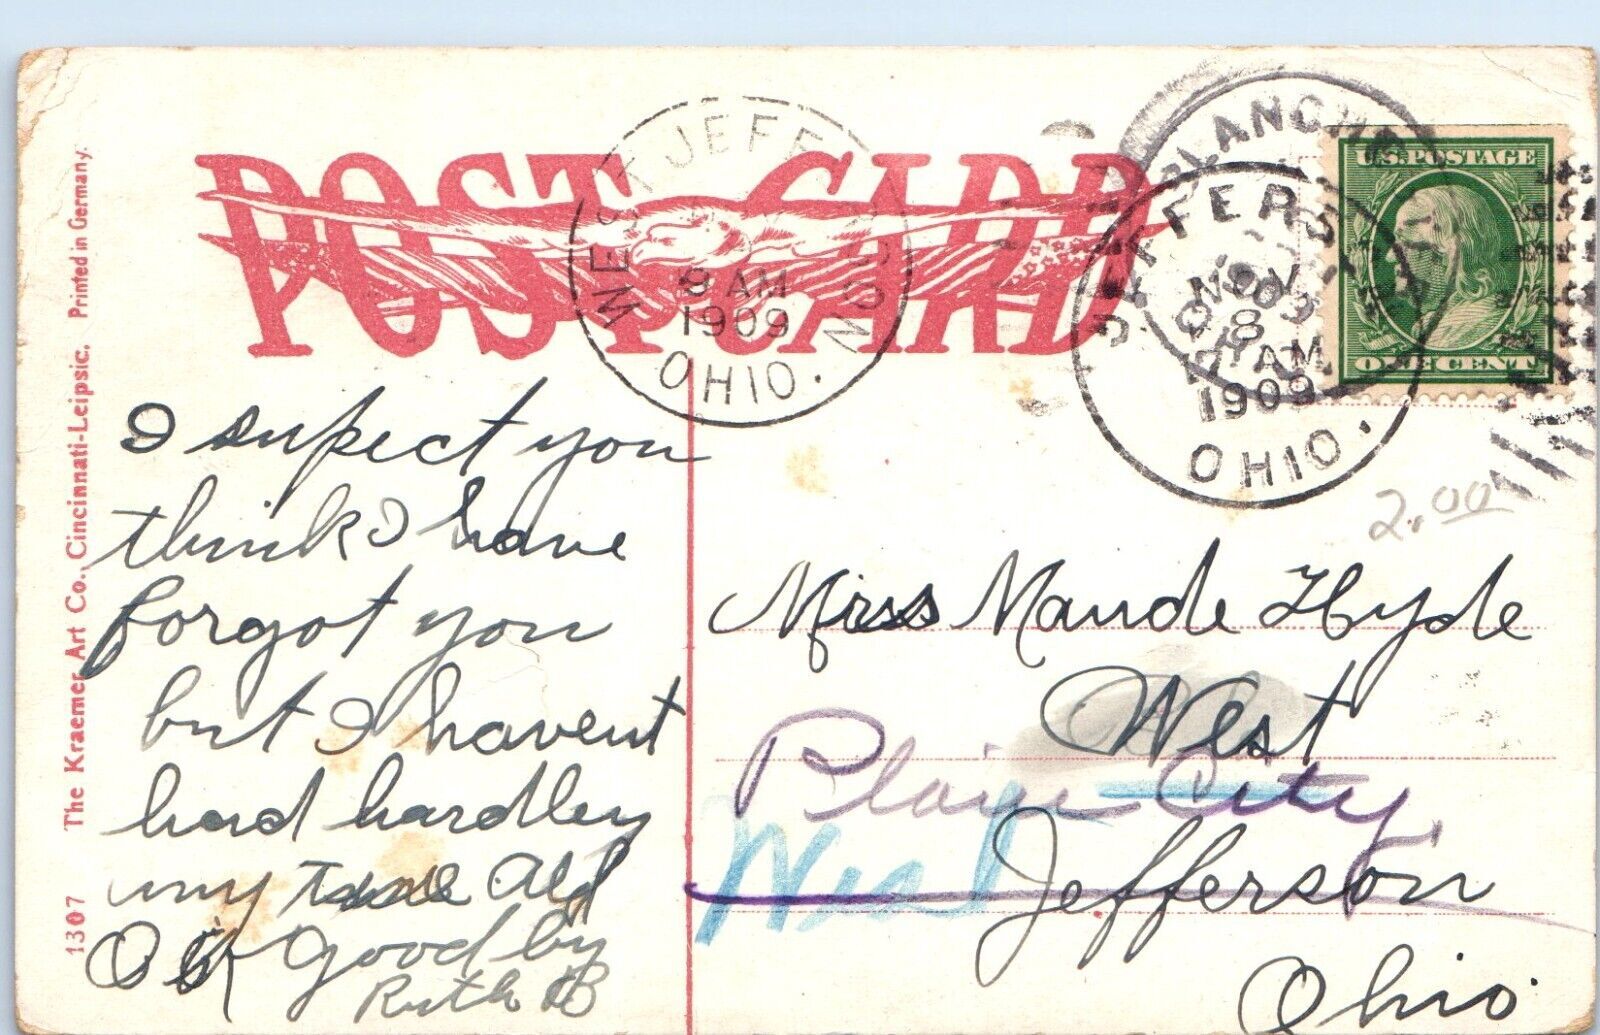 POST CARD
WEST JEFFE
NOV
9 AM
1909
OHIO.
BLANCHE
JEFFERSO
NOV
8
AM
1909
OHIO.
U.S. POSTAGE
ONE CENT
2.00
1307 The Kraemer Art Co., Cincinnati-Leipsic. Printed in Germany.
I supect you
think I have
forgot you
but I havent
had hardley
my
good by
Ruth B
Miss Maude Hyde
West
Plain City,
West
Jefferson
Ohio.